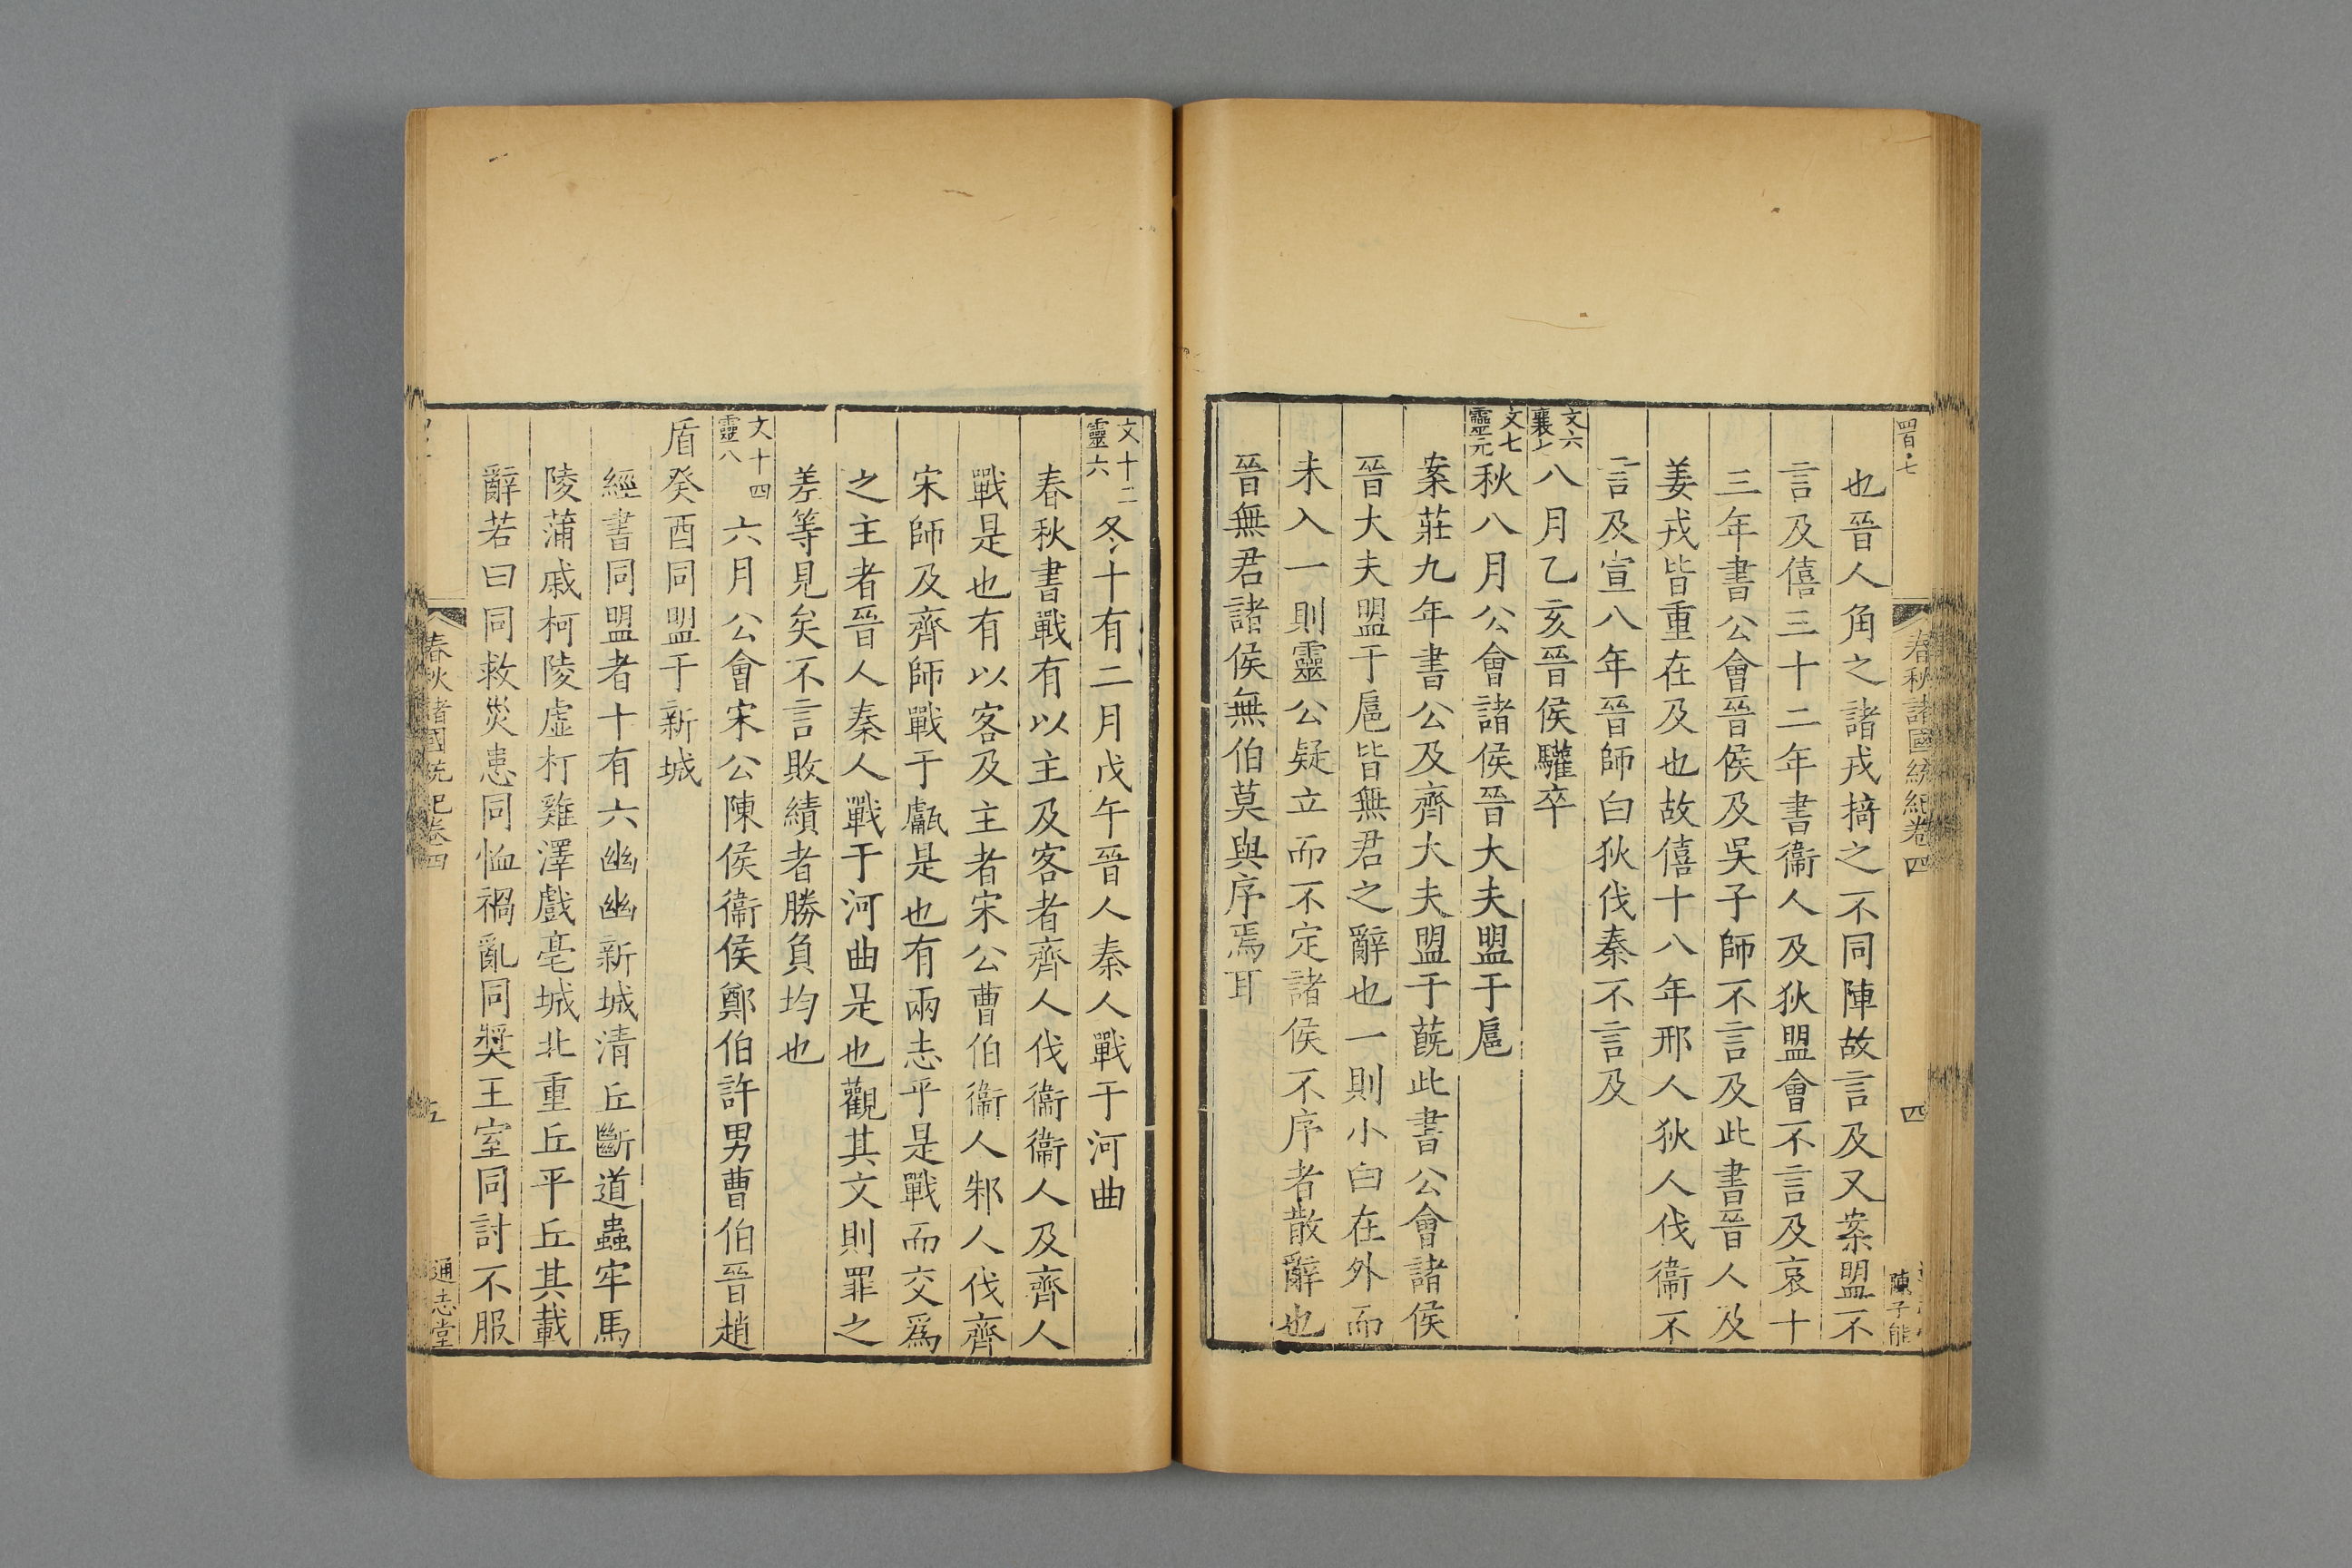 四百七
春秋諸國統紀卷四
四
陳子能
也晉人角之諸戎掎之不同陣故言及又案盟不
言及僖三十二年書衞人及狄盟會不言及哀十
三年書公會晉侯及吳子師不言及此書晉人及
姜戎皆重在及也故僖十八年邢人狄人伐衞不
言及宣八年晉師白狄伐秦不言及
文六
襄七
八月乙亥晉侯驩卒
文七
靈元
秋八月公會諸侯晉大夫盟于扈
案莊九年書公及齊大夫盟于蔇此書公會諸侯
晉大夫盟于扈皆無君之辭也一則小白在外而
未入一則靈公疑立而不定諸侯不序者散辭也
晉無君諸侯無伯莫與序焉耳
文十二
靈六
冬十有二月戊午晉人秦人戰于河曲
春秋書戰有以主及客者齊人伐衞衞人及齊人
戰是也有以客及主者宋公曹伯衞人邾人伐齊
宋師及齊師戰于甗是也有兩志乎是戰而交爲
之主者晉人秦人戰于河曲是也觀其文則罪之
差等見矣不言敗績者勝負均也
文十四
靈八
六月公會宋公陳侯衞侯鄭伯許男曹伯晉趙
盾癸酉同盟于新城
經書同盟者十有六幽幽新城清丘斷道蟲牢馬
陵蒲戚柯陵虛朾雞澤戲亳城北重丘平丘其載
辭若曰同救災患同恤禍亂同奬王室同討不服
春秋諸國統紀卷四
五
通志堂